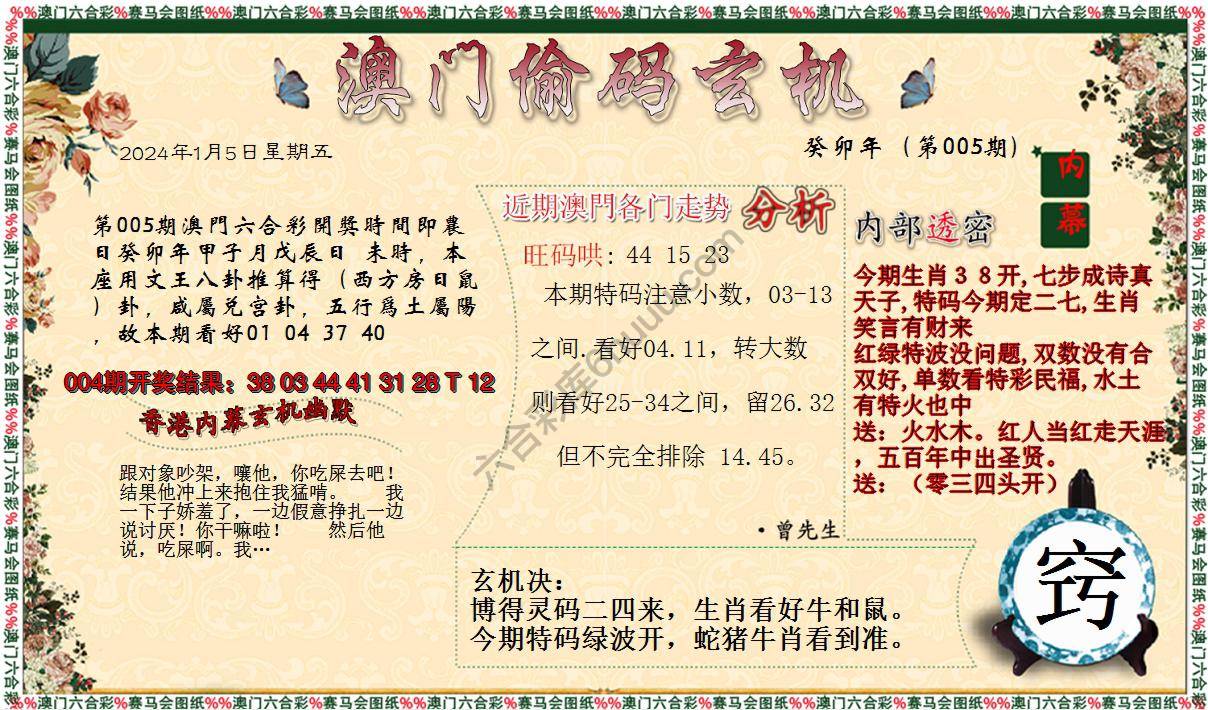 %%澳门六合彩%赛马会图纸%%澳门六合彩%赛马会图纸%%澳门六合彩%赛马会图纸%%澳门六合彩%赛马会图纸%%澳门六合彩%赛马会图纸%%澳门六合彩%赛马会图纸%%
澳门偷码玄机
2024年1月5日星期五
癸卯年（第005期）
内幕
第005期澳門六合彩開獎時間即農
日癸卯年甲子月戊辰日 未時，本
座用文王八卦推算得（西方房日鼠
）卦，咸屬兑宫卦，五行爲土屬陽
，故本期看好01 04 37 40
004期开奖结果：38 03 44 41 31 28 T 12
香港内幕玄机幽默
跟对象吵架，嚷他，你吃屎去吧！
结果他冲上来抱住我猛啃。 我
一下子娇羞了，一边假意挣扎一边
说讨厌！你干嘛啦！ 然后他
说，吃屎啊。我…
近期澳門各门走势 分析
旺码哄: 44 15 23
本期特码注意小数，03-13
之间.看好04.11，转大数
则看好25-34之间，留26.32
但不完全排除 14.45。
·曾先生
内部透密
今期生肖３８开,七步成诗真
天子,特码今期定二七,生肖
笑言有财来
红绿特波没问题,双数没有合
双好,单数看特彩民福,水土
有特火也中
送：火水木。红人当红走天涯
，五百年中出圣贤。
送：（零三四头开）
玄机决：
博得灵码二四来，生肖看好牛和鼠。
今期特码绿波开，蛇猪牛肖看到准。
窍
%%澳门六合彩%赛马会图纸%%澳门六合彩%赛马会图纸%%澳门六合彩%赛马会图纸%%澳门六合彩%赛马会图纸%%澳门六合彩%赛马会图纸%%澳门六合彩%赛马会图纸%%